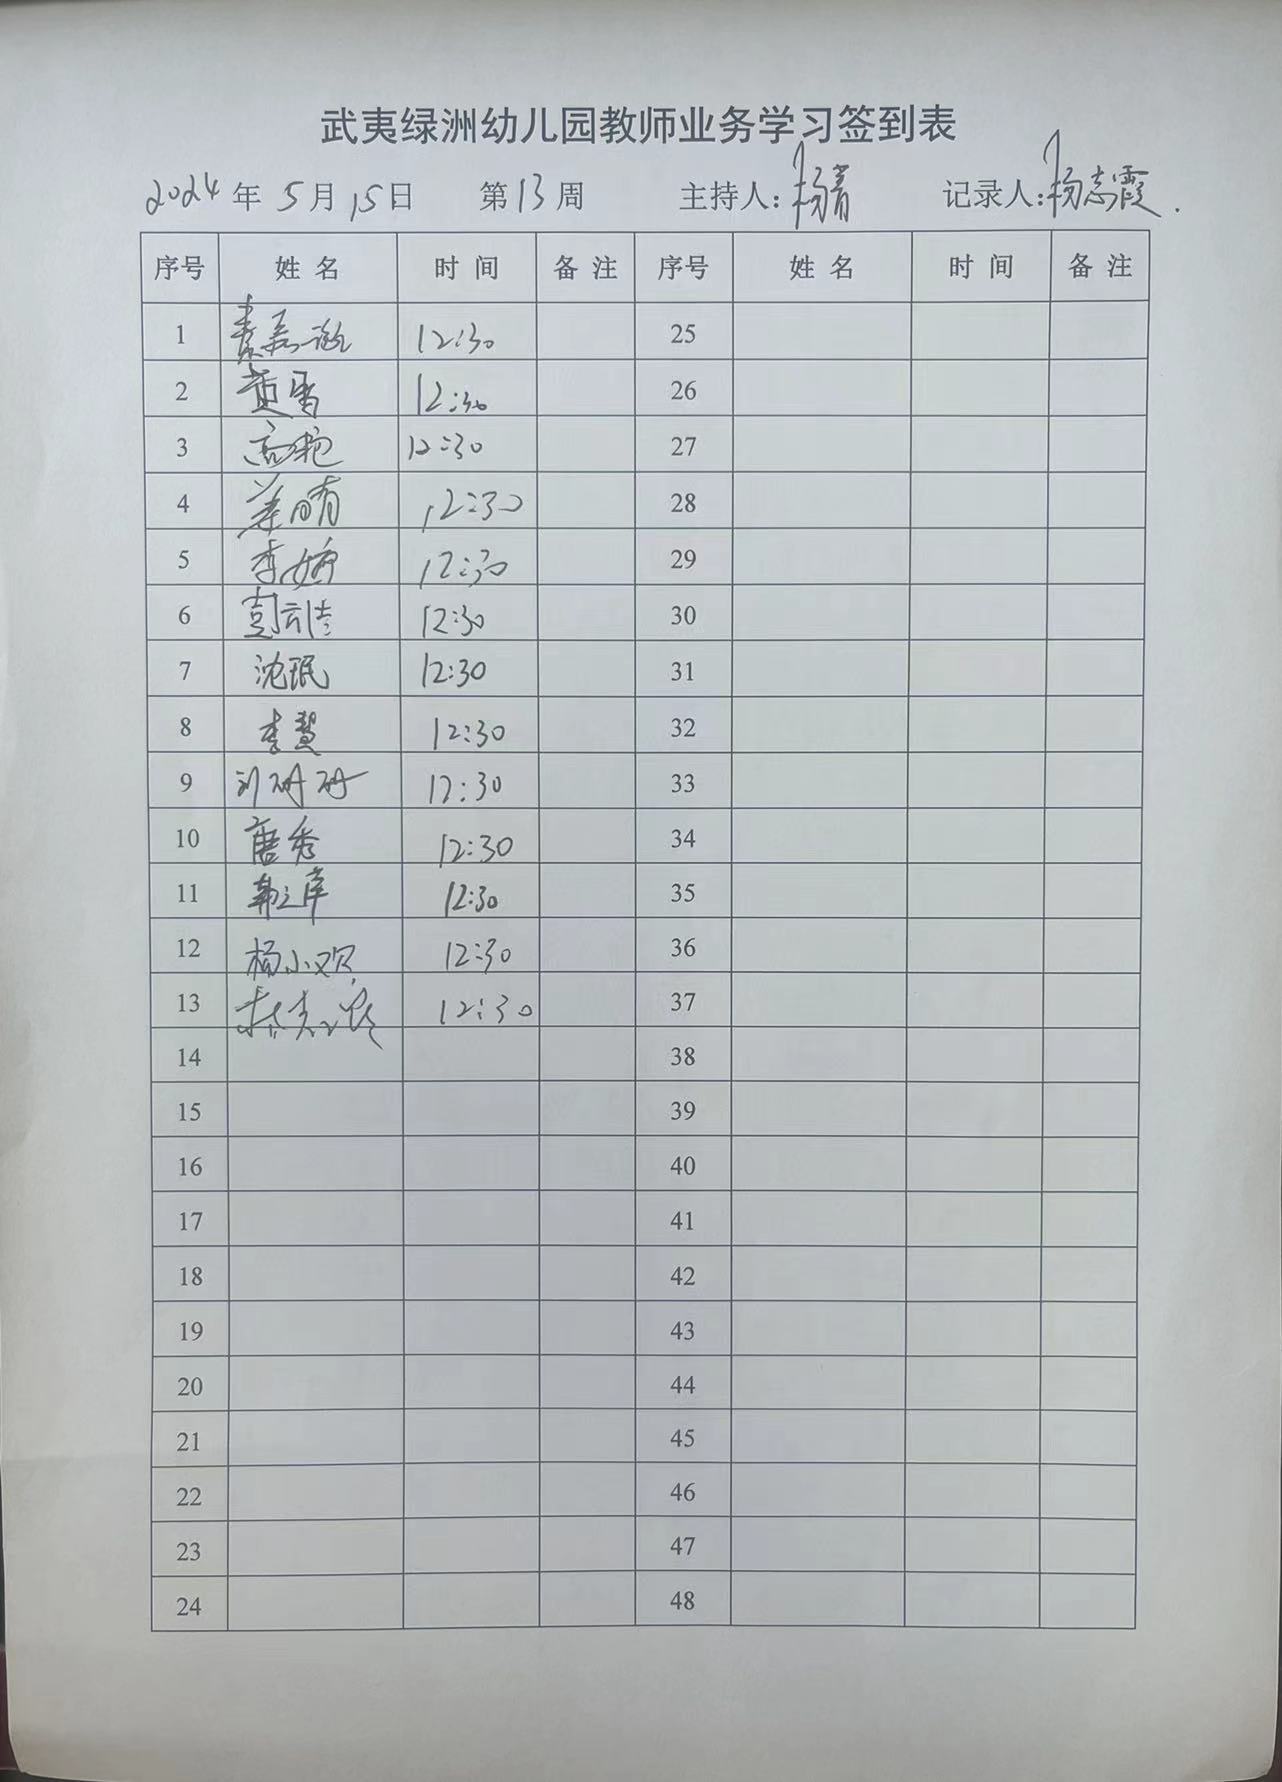 武夷绿洲幼儿园教师业务学习签到表
2024年 5月 15日 第13周 主持人：杨青 记录人：杨志霞.
序号 姓名 时间 备注 序号 姓名 时间 备注
1 12:30 25
2 黄雪 12:30 26
3 高艳 12:30 27
4 姜晴 12:30 28
5 李娇 12:30 29
6 彭云佳 12:30 30
7 沈珉 12:30 31
8 李慧 12:30 32
9 刘研研 12:30 33
10 唐秀 12:30 34
11 12:30 35
12 杨小欢 12:30 36
13 12:30 37
14 38
15 39
16 40
17 41
18 42
19 43
20 44
21 45
22 46
23 47
24 48